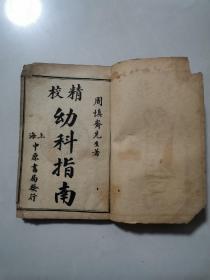 周慎齋先生著
精校
幼科指南
上海中原書局發行